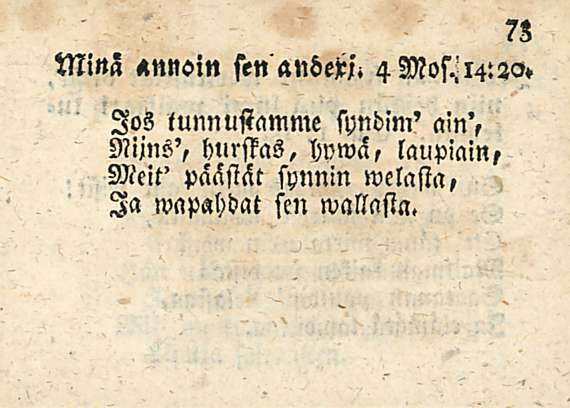 73
Minä annoin sen anderi. 4 Mos. 14:20.
Jos tunnustamme syndim' ain',
Nijns', hurskas, hywä, laupiain,
Meit' päästät synnin welasta,
Ja wapahdat sen wallasta.